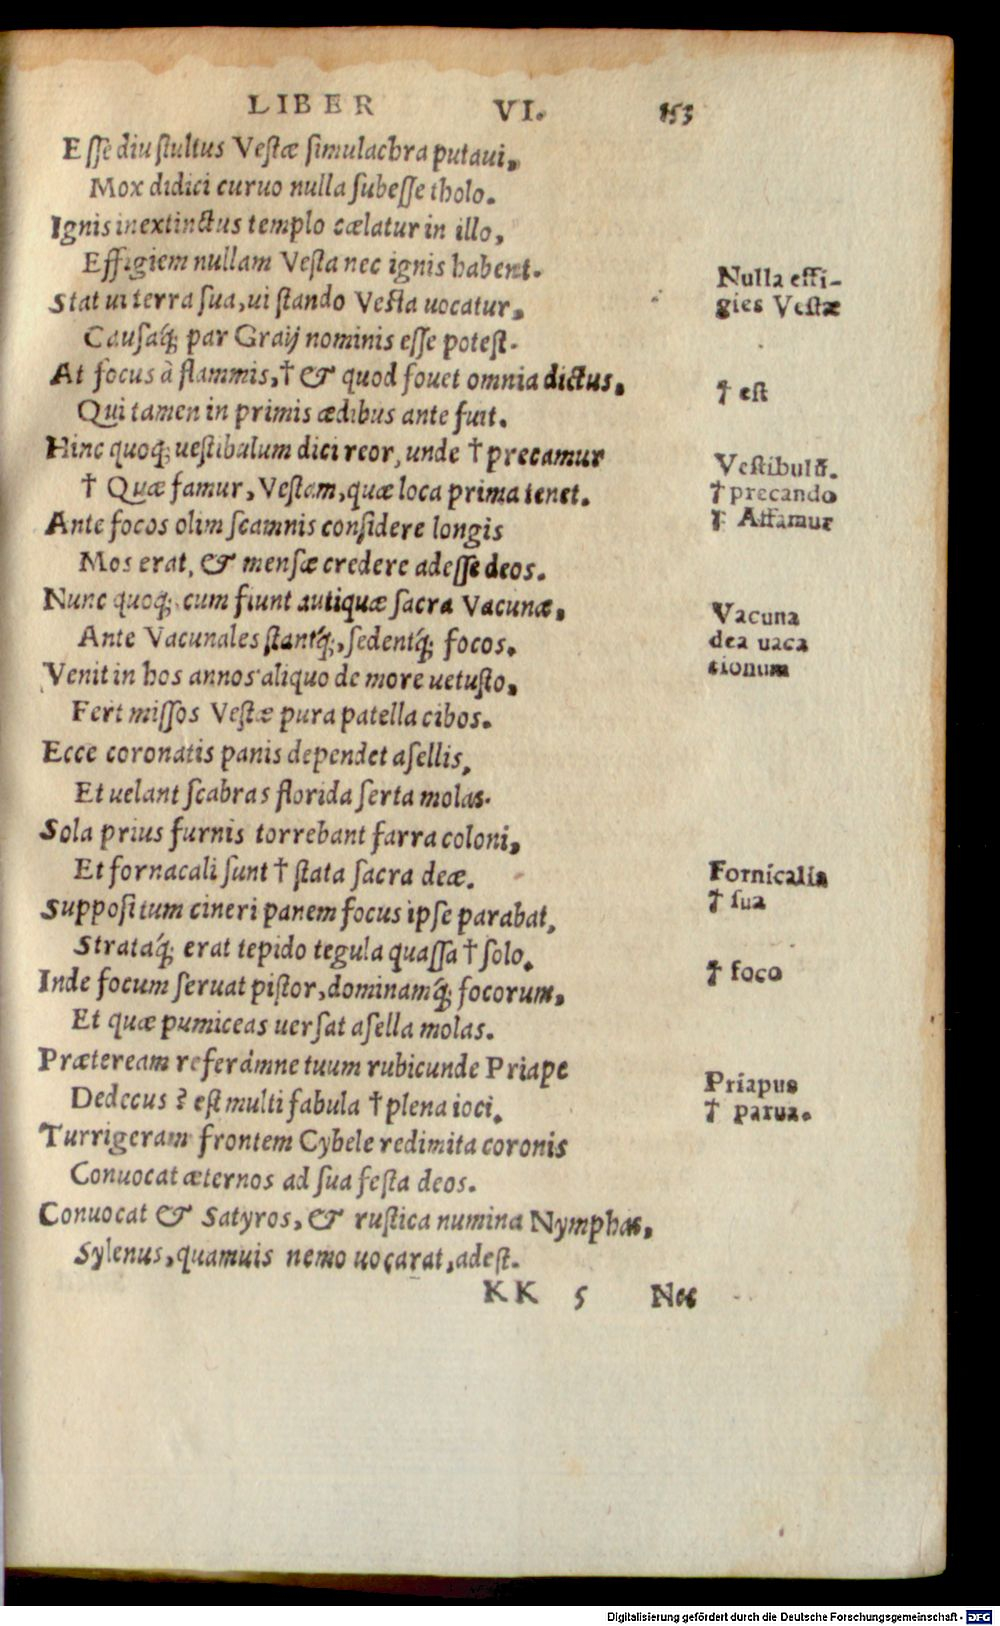 LIBER VI. 153
Esse diu stultus Vestæ simulachra putaui,
Mox didici curuo nulla subesse tholo.
Ignis inextinctus templo cælatur in illo,
Effigiem nullam Vesta nec ignis habent.
Nulla effi-
Stat ui terra sua, ui stando Vesta uocatur,
gies Vestæ
Causaq́; par Graij nominis esse potest.
At focus à flammis, † & quod fouet omnia dictus,
† est
Qui tamen in primis ædibus ante fuit.
Hinc quoq; uestibulum dici reor, unde † precamur
Vestibulū.
† Quæ famur, Vestam, quæ loca prima tenet.
† precando
Ante focos olim scamnis considere longis
† Affamur
Mos erat, & mensæ credere adesse deos.
Nunc quoq; cum fiunt autiquæ sacra Vacunæ,
Vacuna
Ante Vacunales stantq́;, sedentq́; focos.
dea uaca
Venit in hos annos aliquo de more uetusto,
tionum
Fert missos Vestæ pura patella cibos.
Ecce coronatis panis dependet asellis,
Et uelant scabras florida serta molas.
Sola prius furnis torrebant farra coloni,
Et fornacali sunt † stata sacra deæ.
Fornicalia
† sua
Suppositum cineri panem focus ipse parabat,
Strataq́; erat tepido tegula quassa † solo.
† foco
Inde focum seruat pistor, dominamq́; focorum,
Et quæ pumiceas uersat asella molas.
Præteream referámne tuum rubicunde Priape
Priapus
Dedecus? est multi fabula † plena ioci.
† parua.
Turrigeram frontem Cybele redimita coronis
Conuocat æternos ad sua festa deos.
Conuocat & Satyros, & rustica numina Nymphas,
Sylenus, quamuis nemo uocarat, adest.
KK 5 Nec
Digitalisierung gefördert durch die Deutsche Forschungsgemeinschaft - DFG